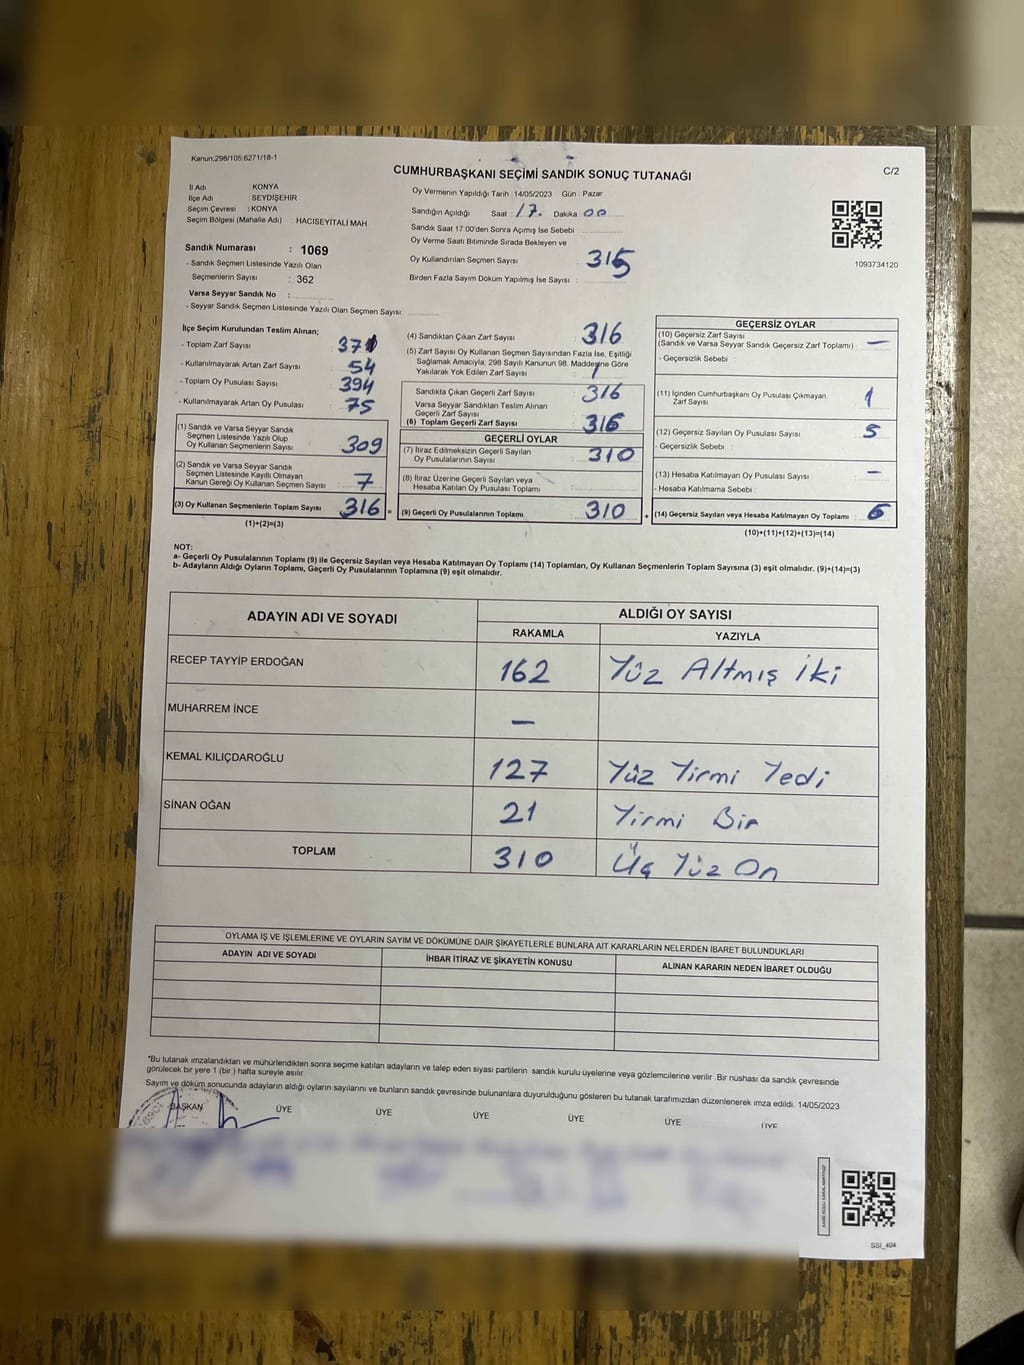 Kanun:298/105;6271/18-1
CUMHURBAŞKANI SEÇİMİ SANDIK SONUÇ TUTANAĞI
C/2
İl Adı : KONYA
İlçe Adı : SEYDİŞEHİR
Seçim Çevresi : KONYA
Seçim Bölgesi (Mahalle Adı) HACISEYİTALİ MAH
Sandık Numarası : 1069
- Sandık Seçmen Listesinde Yazılı Olan
Seçmenlerin Sayısı : 362
Varsa Seyyar Sandık No :
- Seyyar Sandık Seçmen Listesinde Yazılı Olan Seçmen Sayısı:
Oy Vermenin Yapıldığı Tarih :14/05/2023 Gün : Pazar
Sandığın Açıldığı Saat 17. Dakika 00
Sandık Saat 17.00'den Sonra Açımış İse Sebebi :
Oy Verme Saati Bitiminde Sırada Bekleyen ve
Oy Kullandırılan Seçmen Sayısı : 315
Birden Fazla Sayım Döküm Yapılmış İse Sayısı :
1093734120
İlçe Seçim Kurulundan Teslim Alınan;
- Toplam Zarf Sayısı : 371
- Kullanılmayarak Artan Zarf Sayısı : 54
- Toplam Oy Pusulası Sayısı : 394
- Kullanılmayarak Artan Oy Pusulası : 75
(1) Sandık ve Varsa Seyyar Sandık
Seçmen Listesinde Yazılı Olup
Oy Kullanan Seçmenlerin Sayısı : 309
(2) Sandık ve Varsa Seyyar Sandık
Seçmen Listesinde Kayıtlı Olmayan
Kanun Gereği Oy Kullanan Seçmen Sayısı : 7
(3) Oy Kullanan Seçmenlerin Toplam Sayısı : 316 =
(1)+(2)=(3)
(4) Sandıktan Çıkan Zarf Sayısı : 316
(5) Zarf Sayısı Oy Kullanan Seçmen Sayısından Fazla İse, Eşitliği
Sağlamak Amacıyla; 298 Sayılı Kanunun 98. Maddesine Göre
Yakılarak Yok Edilen Zarf Sayısı :
Sandıkta Çıkan Geçerli Zarf Sayısı : 316
Varsa Seyyar Sandıktan Teslim Alınan
Geçerli Zarf Sayısı :
(6) Toplam Geçerli Zarf Sayısı : 316
GEÇERLİ OYLAR
(7) İtiraz Edilmeksizin Geçerli Sayılan
Oy Pusulalarının Sayısı : 310
(8) İtiraz Üzerine Geçerli Sayılan veya
Hesaba Katılan Oy Pusulası Toplamı :
(9) Geçerli Oy Pusulalarının Toplamı : 310 +
GEÇERSİZ OYLAR
(10) Geçersiz Zarf Sayısı
(Sandık ve Varsa Seyyar Sandık Geçersiz Zarf Toplamı) : —
- Geçersizlik Sebebi :
(11) İçinden Cumhurbaşkanı Oy Pusulası Çıkmayan
Zarf Sayısı : 1
(12) Geçersiz Sayılan Oy Pusulası Sayısı : 5
- Geçersizlik Sebebi :
(13) Hesaba Katılmayan Oy Pusulası Sayısı : —
- Hesaba Katılmama Sebebi :
(14) Geçersiz Sayılan veya Hesaba Katılmayan Oy Toplamı : 6
(10)+(11)+(12)+(13)=(14)
NOT:
a- Geçerli Oy Pusulalarının Toplamı (9) ile Geçersiz Sayılan veya Hesaba Katılmayan Oy Toplamı (14) Toplamları, Oy Kullanan Seçmenlerin Toplam Sayısına (3) eşit olmalıdır. (9)+(14)=(3)
b- Adayların Aldığı Oyların Toplamı, Geçerli Oy Pusulalarının Toplamına (9) eşit olmalıdır.
ADAYIN ADI VE SOYADI ALDIĞI OY SAYISI
RAKAMLA YAZIYLA
RECEP TAYYİP ERDOĞAN 162 Yüz Altmış İki
MUHARREM İNCE —
KEMAL KILIÇDAROĞLU 127 Yüz Yirmi Yedi
SİNAN OĞAN 21 Yirmi Bir
TOPLAM 310 Üç Yüz On
OYLAMA İŞ VE İŞLEMLERİNE VE OYLARIN SAYIM VE DÖKÜMÜNE DAİR ŞİKAYETLERLE BUNLARA AİT KARARLARIN NELERDEN İBARET BULUNDUKLARI
ADAYIN ADI VE SOYADI İHBAR İTİRAZ VE ŞİKAYETİN KONUSU ALINAN KARARIN NEDEN İBARET OLDUĞU
*Bu tutanak imzalandıktan ve mühürlendikten sonra seçime katılan adayların ve talep eden siyasi partilerin sandık kurulu üyelerine veya gözlemcilerine verilir .Bir nüshası da sandık çevresinde
görülecek bir yere 1 (bir ) hafta süreyle asılır.
Sayım ve döküm sonucunda adayların aldığı oyların sayılarını ve bunların sandık çevresinde bulunanlara duyurulduğunu gösteren bu tutanak tarafımızdan düzenlenerek imza edildi. 14/05/2023
BAŞKAN ÜYE ÜYE ÜYE ÜYE ÜYE ÜYE
SSI_404